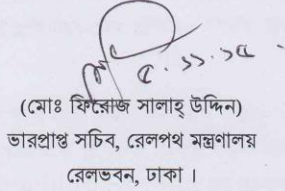 ৫.১১.১৫
(মোঃ ফিরোজ সালাহ্ উদ্দিন)
ভারপ্রাপ্ত সচিব, রেলপথ মন্ত্রণালয়
রেলভবন, ঢাকা ।